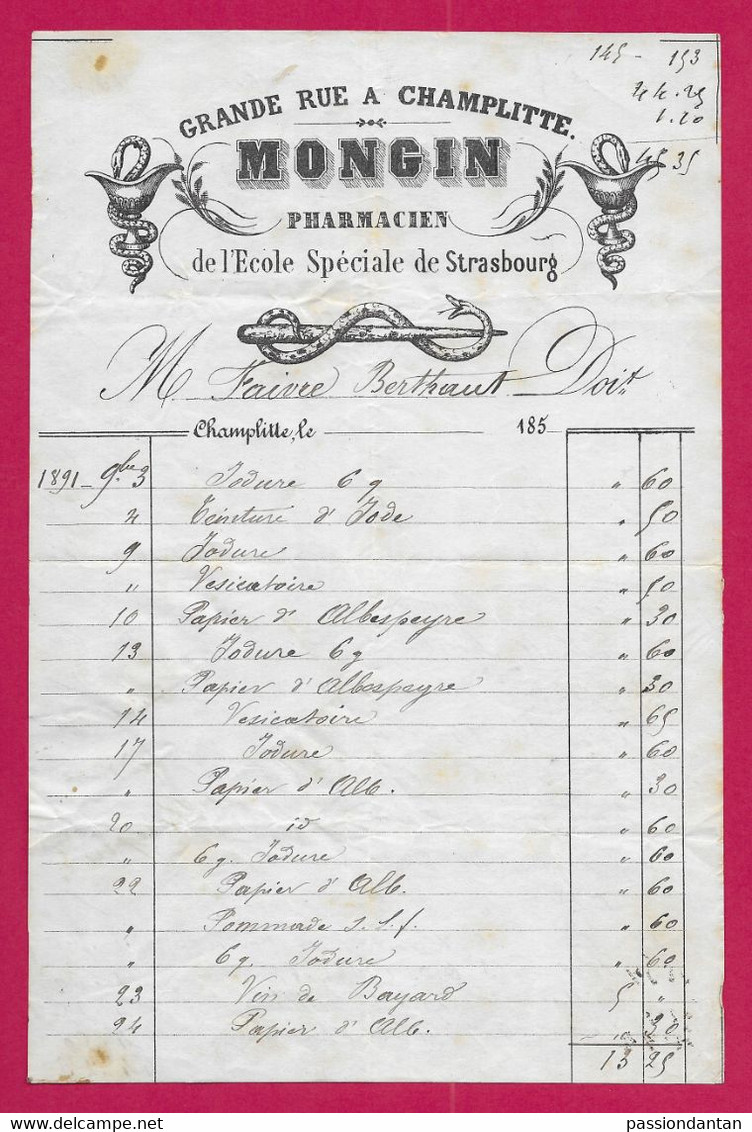 145 - 153
44.25
1.20
45 35
GRANDE RUE A CHAMPLITTE.
MONGIN
PHARMACIEN
de l'Ecole Spéciale de Strasbourg
M Faivre Berthaut Doit
Champlitte, le 185
1891 - 9bre 3 Iodure 6 g " 60
4 Teinture d'Iode " 50
9 Iodure " 60
" Vesicatoire " 50
10 Papier d'Albespeyre " 30
13 Iodure 6 g " 60
" Papier d'Albespeyre " 30
14 Vesicatoire " 65
17 Iodure " 60
" Papier d'Alb. " 30
20 id " 60
" 6 g. Iodure " 60
22 Papier d'Alb. " 60
" Pommade s.l.f. " 60
" 6 g. Iodure " 60
23 Vin de Bayard 5 "
24 Papier d'Alb. " 30
13 25
passiondantan